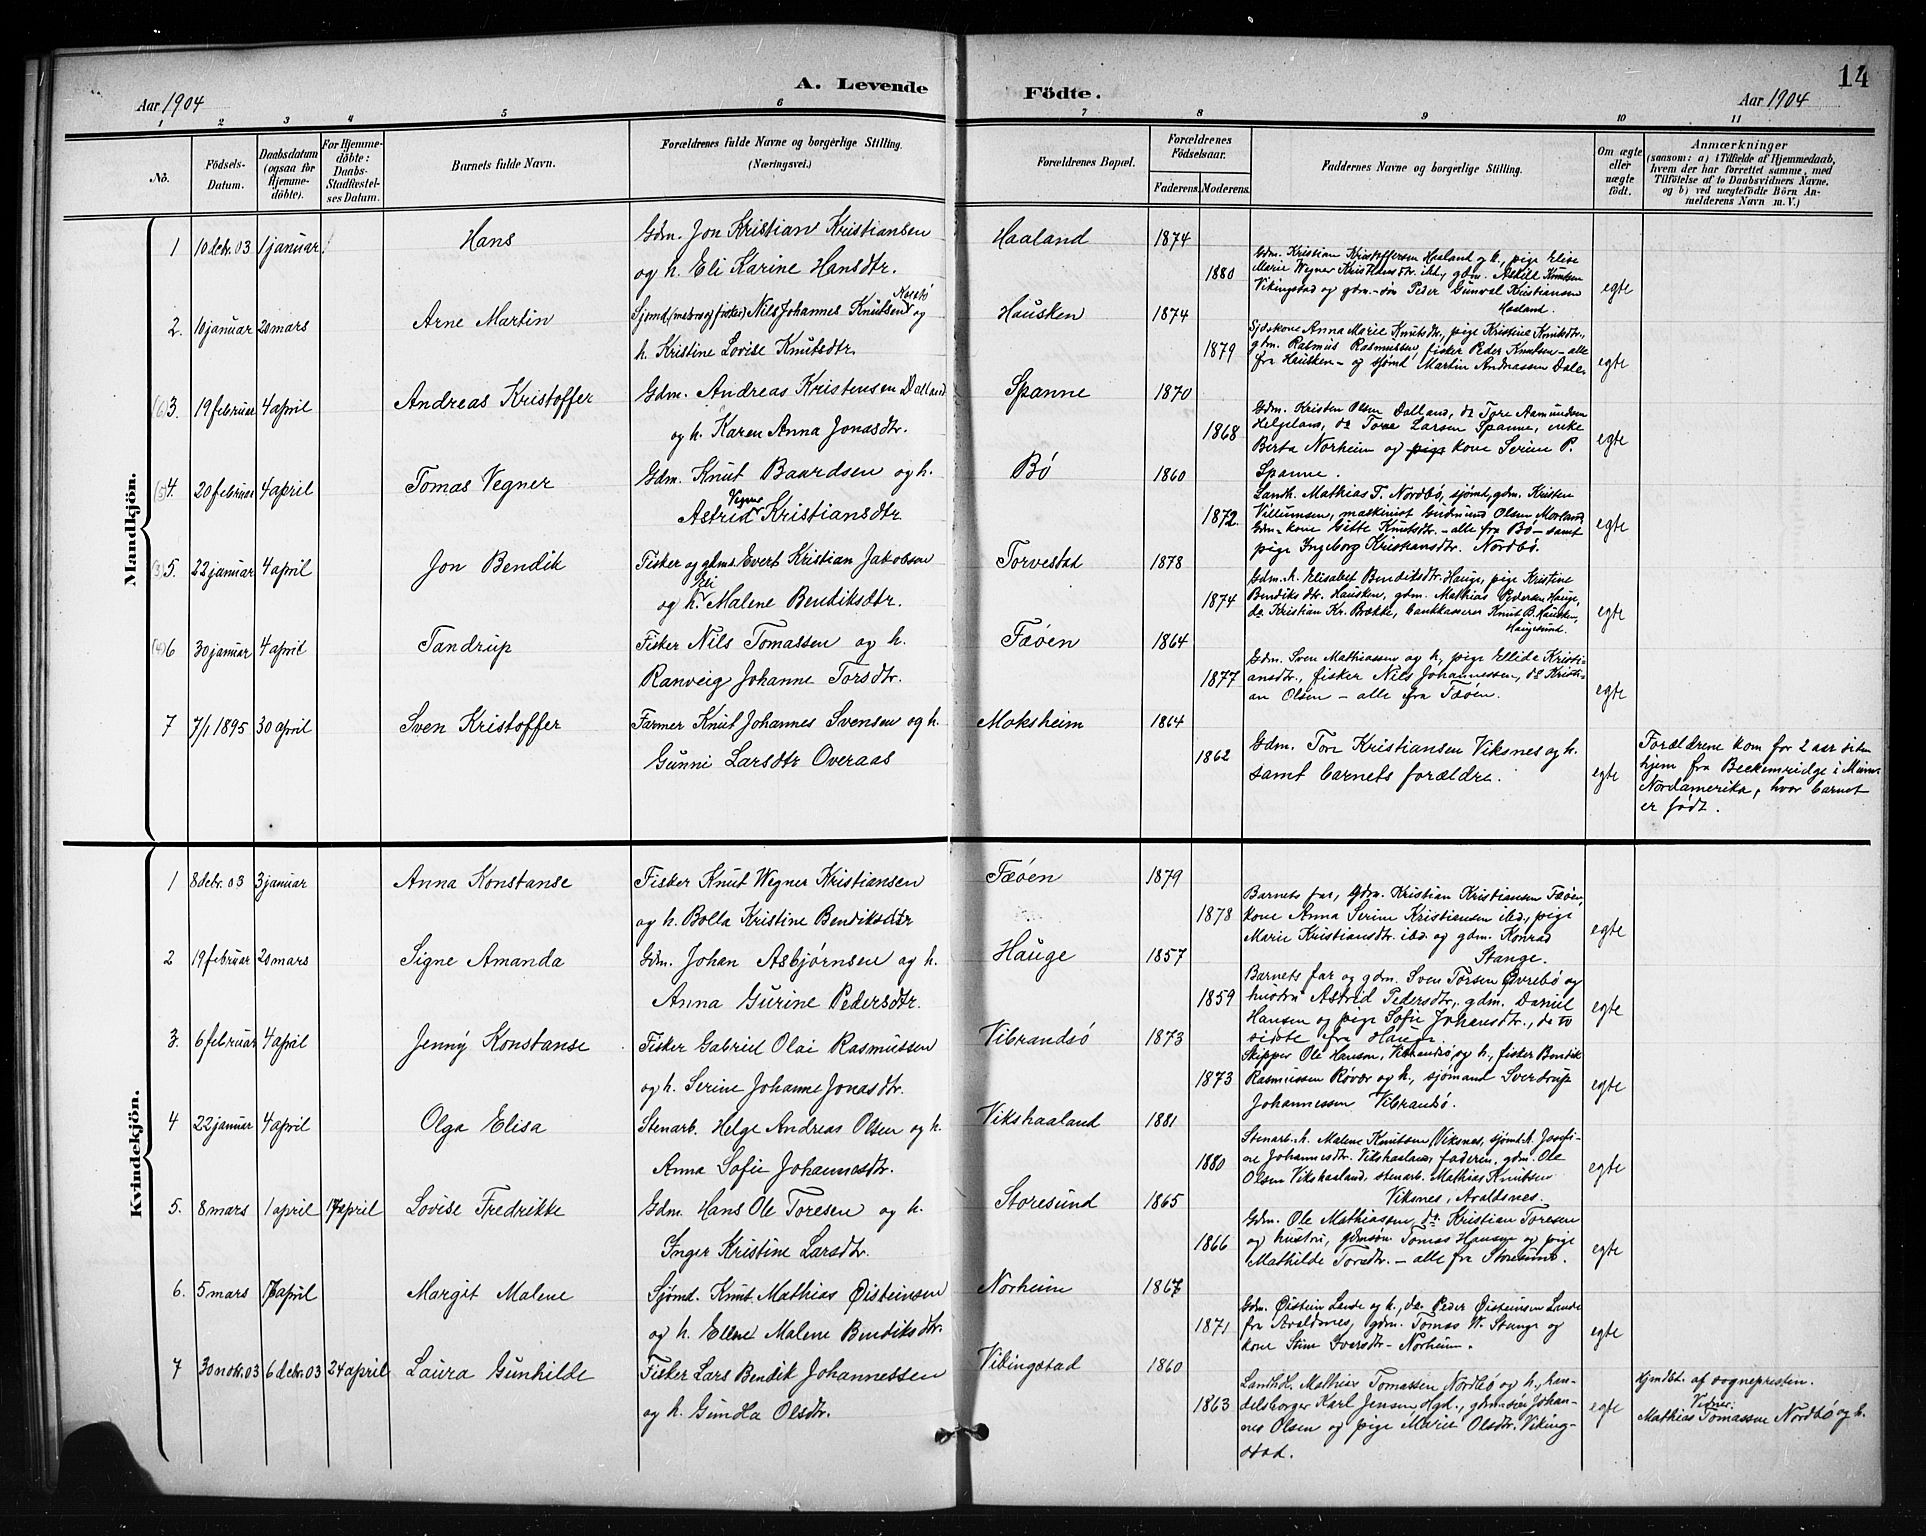 14
A. Levende Födte.
Aar 1904
Aar 1904
1 2 3 4 5 6 7 8 9 10 11
No.
Födsels-Datum.
Daabsdatum (ogsaa for Hjemmedöbte).
For Hjemmedöbte: Daabs-Stadfæstelses Datum.
Barnets fulde Navn.
Forældrenes fulde Navne og borgerlige Stilling. (Næringsvei.)
Forældrenes Bopæl.
Forældrenes Födselsaar.
Faderens. Moderens.
Faddernes Navne og borgerlige Stilling.
Om ægte eller uægte födt.
Anmærkninger
(saasom: a) i Tilfælde af Hjemmedaab, hvem der har forrettet samme, med Tilföielse af to Daabsvidners Navne, og b) ved uægtefödte Börn Anmelderens Navn m. V.)
Mandkjön.
1 10 debr. 03 1 januar Hans Gdm. Jon Kristian Kristiansen
og h. Eli Karine Hansdtr.
Haaland 1874 1880
Gdm. Kristian Kristoffersen Haaland og h., pige Elise
Marie Vegner Kristiansdtr. ibd., gdm. Askild Knutsen
Vikingstad og gdm.-søn Peder Gunval Kristiansen
Haaland.
egte
2. 10 januar 20 mars Arne Martin Sjømd. (matros og fisker) Nils Johannes Knutsen og
h. Kristine Lovise Knutsdtr.
Hausken 1874 1879
Sjøskone Anna Marie Knutsdtr., pige Kristine Knutsdtr.,
gdm. Rasmus Rasmussen, fisker Peder Knutsen – alle
fra Hausken – og sjømd. Martin Andreassen Dale.
egte
(6) 3. 19 februar 4 april Andreas Kristoffer Gdm. Andreas Kristensen Dalland
og h. Karen Anna Jonasdtr.
Spanne 1870 1868
Gdm. Kristen Olsen Dalland, do Tore Aamundsen
Helgeland, do Tore Larsen Spanne, enke
Berta Norheim og pige kone Serine P.
Spanne.
egte
(5) 4. 20 februar 4 april Tomas Vegner Gdm. Knut Baardsen og h.
Astrid Vegner Kristiansdtr.
Bø 1860 1872.
Landh. Mathias T. Nordbø, sjømt, gdm. Kristen
Villumsen, maskinist Gudmund Olsen Morland
Gdm.-kone Gitte Knutsdtr. – alle fra Bø – samt
pige Ingeborg Kristiansdtr. Nordbø.
egte
(3) 5. 22 januar 4 april Jon Bendik Fisker og gdms. Evert Kristian Jakobsen
og h. Eli Malene Bendiksdtr.
Torvestad 1878 1874
Gdm. h. Elisabet Bendiksdtr. Hauge, pige Kristine
Bendiksdtr. Hausken, gdm. Mathias Pedersen Hauge,
do Kristian Kr. Bække, bankkasserer Knut B. Hausken,
Haugesund.
egte
(4) 6 30 januar 4 april Tandrup Fisker Nils Tomassen og h.
Ranveig Johanne Torsdtr.
Fæøen 1864 1877
Gdm. Sven Mathiassen og h., pige Ellida Kristi-
ansdtr., fisker Nils Johannessen, do Kristi-
an Olsen – alle fra Fæøen.
egte
7 7/1 1895 30 april Sven Kristoffer Farmer Knut Johannes Svensen og h.
Gunni Larsdtr Overaas
Moksheim 1864 1862
Gdm. Tore Kristiansen Viksnes og h.
samt barnets forældre.
egte
Forældrene kom for 2 aar siden
hjem fra Beckenridge i Minn.
Nordamerika, hvor barnet
er født.
Kvindekjön.
1 8 debr. 03 3 januar Anna Konstanse Fisker Knut Wegner Kristiansen
og h. Bolla Kristine Bendiksdtr
Fæøen 1879 1878
Barnets far, Gdm. Kristian Kristiansen Fæøen,
kone Anna Serine Kristiansen ibd., pige
Marie Kristiansdtr. ibd. og gdm. Konrad
Stange.
egte
2 19 februar 20 mars Signe Amanda Gdm. Johan Asbjørnsen og h.
Anna Gurine Pedersdtr.
Hauge 1857 1859
Barnets far og gdm. Sven Torsen Øvrebø og
hustru Astrid Pedersdtr., gdm. Daniel
Hansen og pige Sofie Johansdtr., de to
sidste fra Hauge.
egte
3. 6 februar 4 april Jenny Konstanse Fisker Gabriel Olai Rasmussen
og h. Serine Johanne Jonasdtr.
Vibrandsø 1873 1873
Skipper Ole Hansen, Vibrandsø, og h., fisker Bendik
Rasmussen Røvær og h., sjømand Sverdrup
Johannessen Vibrandsø.
egte
4 22 januar 4 april Olga Elisa Stenarb. Helge Andreas Olsen og h.
Anna Sofie Johannesdtr.
Vikshaaland 1881 1880
Stenarb. h. Malene Knutsen, Viksnes, sjømd. h. Josefi-
ne Johannesdtr. Vikshaaland, faderen, gdm. Ole
Olsen Vikshaaland, stenarb. Mathias Knutsen
Viksnes, Avaldsnes.
egte
5. 8 mars 1 april 17 april Lovise Fredrikke Gdm. Hans Ole Toresen og h.
Inger Kristine Larsdtr.
Storesund 1865 1866
Gdm. Ole Mathiassen, do. Kristian Toresen
og hustru, gdmsøn Tomas Hansen og pige
Mathilde Torsdtr. – alle fra Storesund.
egte
6. 5 mars 17 april Margit Malene Sjømd. Knut Mathias Øisteinsen
og h. Ellene Malene Bendiksdtr.
Norheim 1867 1871
Gdm. Øistein Lande og h., do. Peder Øisteinsen Lande
fra Avaldsnes, gdm. Tomas W. Stange og
kone Stine Iversdtr – Norheim.
egte
7 30 nobr. 03 6 debr. 03 24 april Laura Gunhilde Fisker Lars Bendik Johannessen
og h. Gunda Olsdtr.
Vikingstad 1860 1863
Landh. Mathias Tomassen Nordbø og h., han-
delsborger Karl Jensen Hgd., gdm.søn Johan-
nes Olsen og pige Marie Olsdtr. Viking-
stad.
egte
Hjmdbt. af sognepresten.
Vidner:
Mathias Tomassen Nordbø og h.